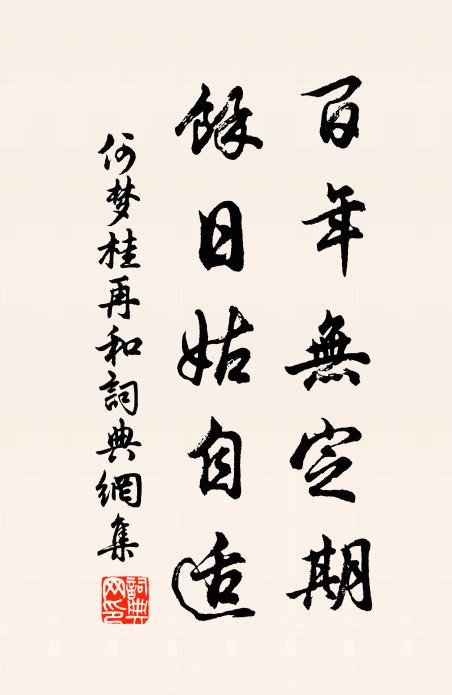 百年無定期
餘日姑自适
何梦桂再和詞典網集
詞典网印